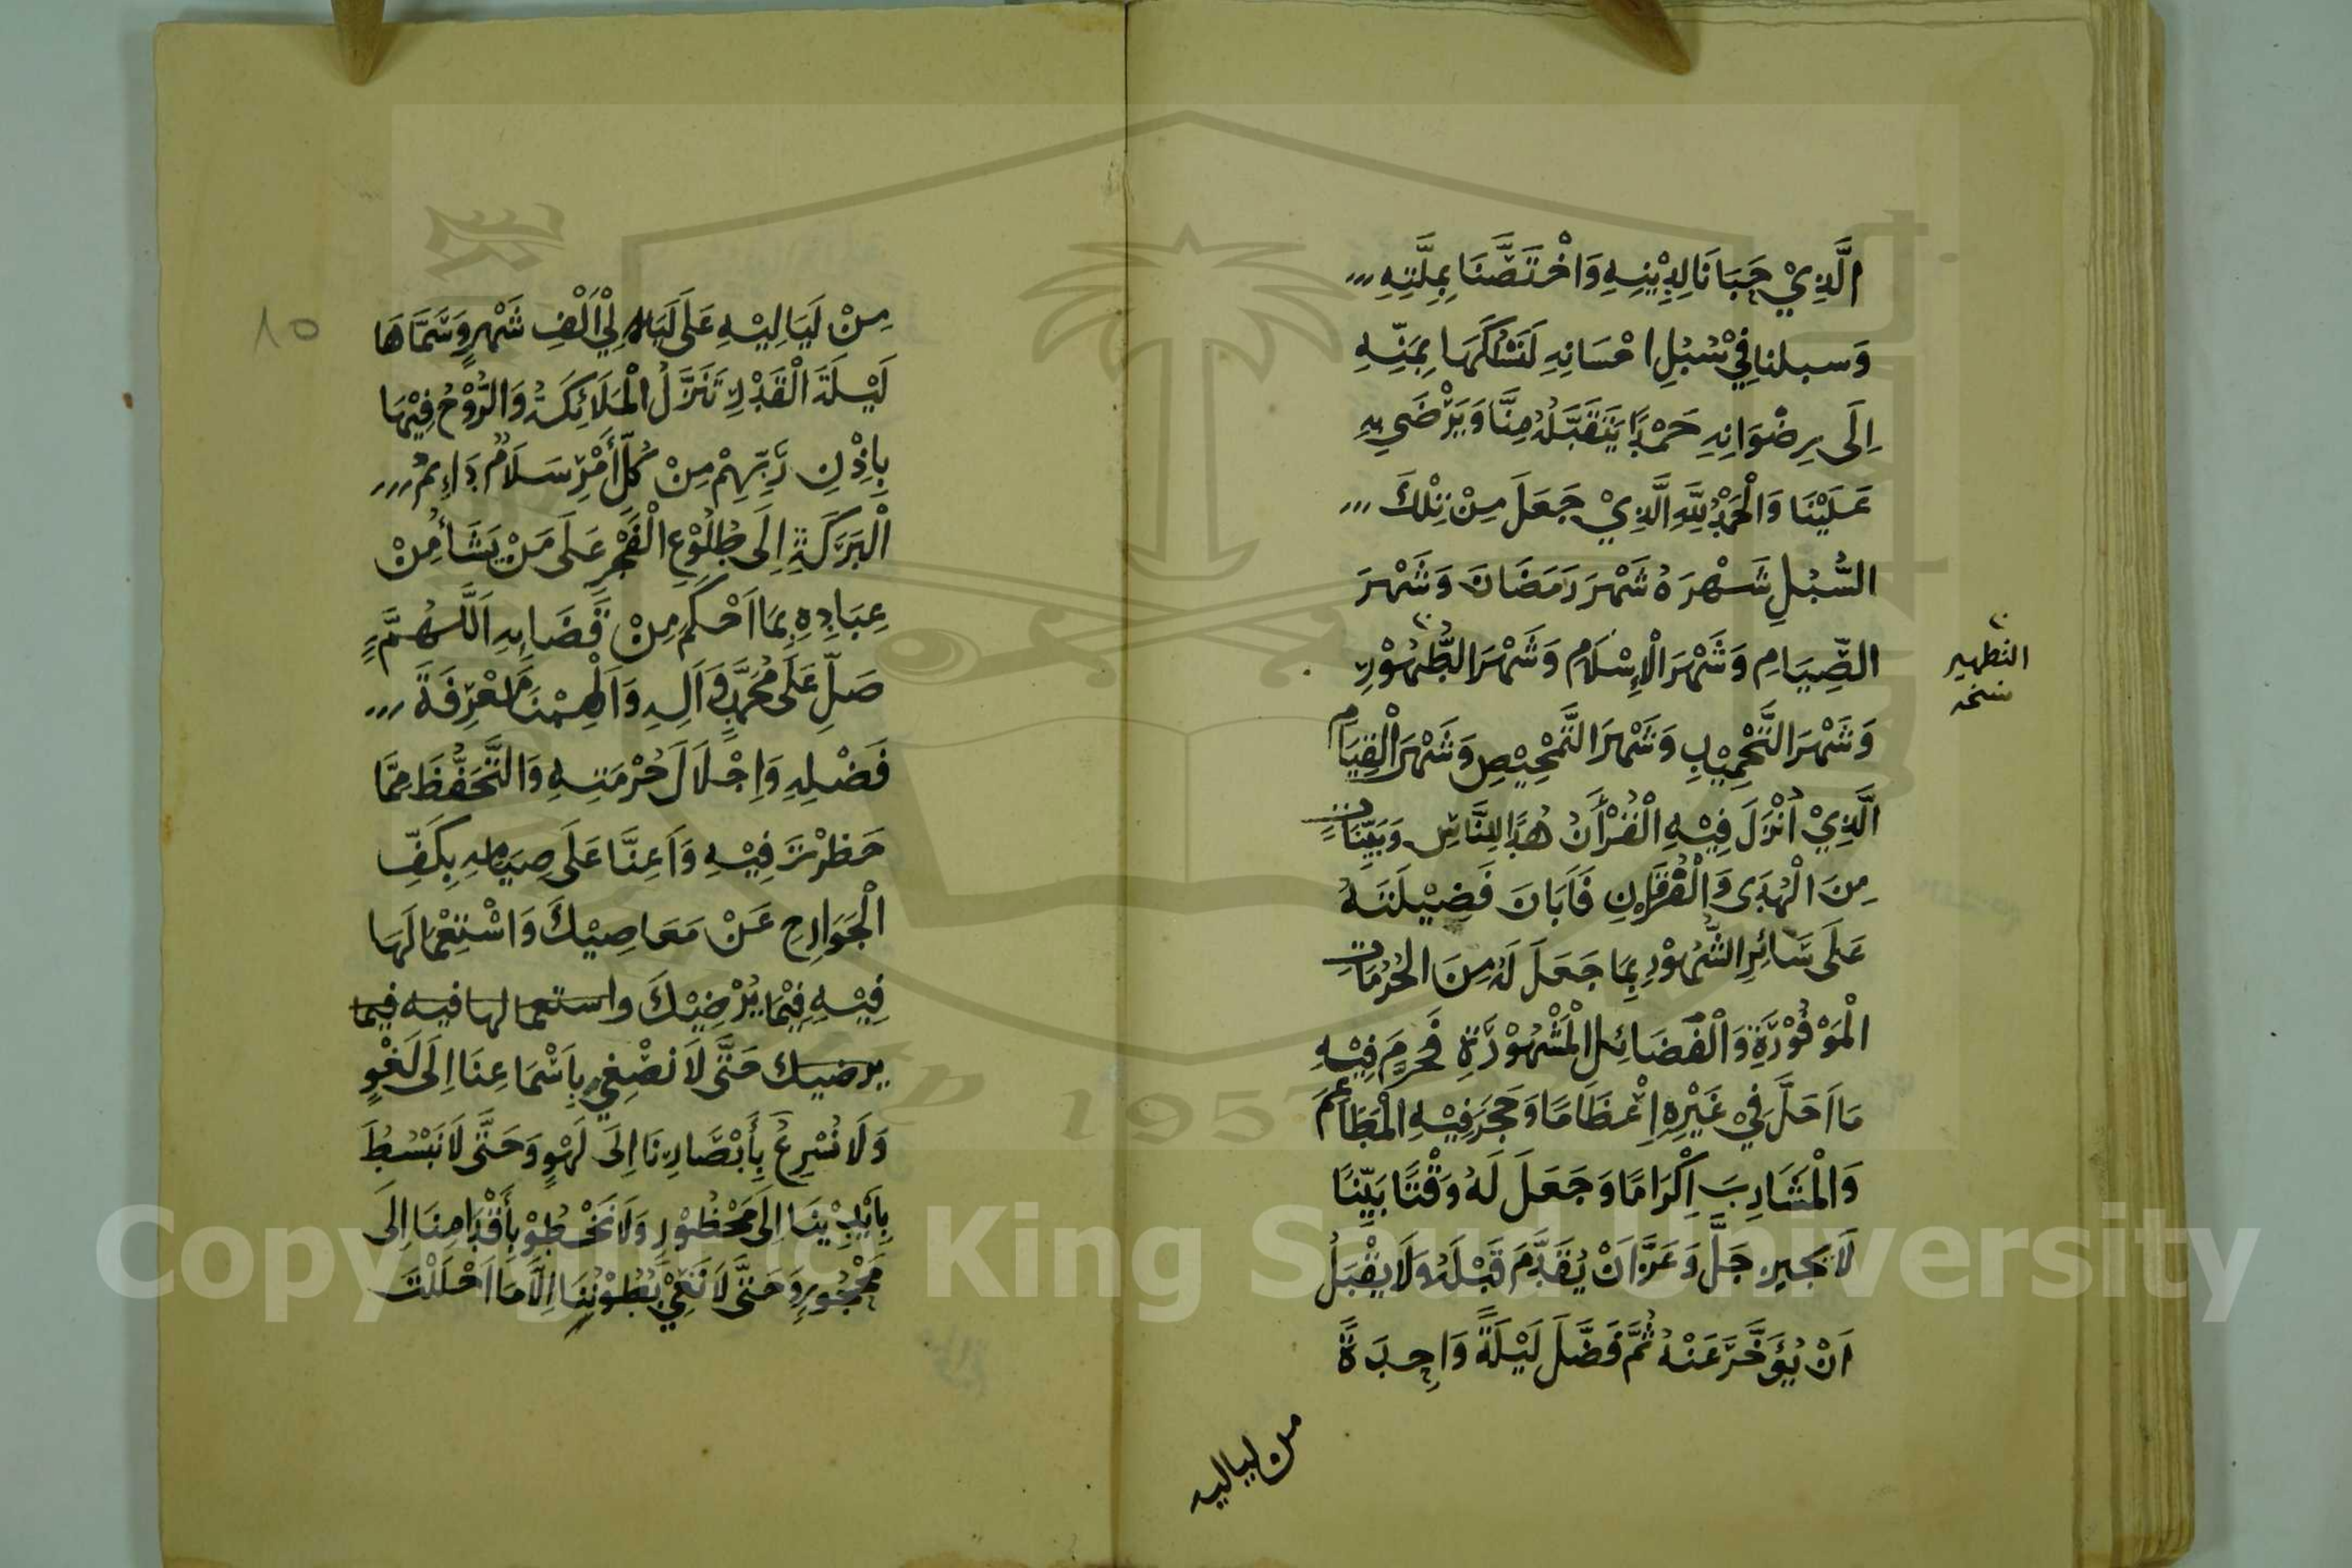 الَّذِيْ حَبَانَا لِدِيْنِهِ وَاخْتَصَّنَا بِمِلَّتِهِ
وَسبلنا فِيْ سُبُلِ احْسَانِهِ لَنَسْلُكَهَا بِمَنِّهِ
اِلَى رِضْوَانِهِ حَمْدًا يَتَقَبَّلُهُ مِنَّا وَيَرْضَى بِهِ
عَلَيْنَا وَالْحَمْدُ لِلَّهِ الَّذِيْ جَعَلَ مِنْ تِلْكَ
السُّبُلِ شَهْرَهُ شَهْرَ رَمَضَانَ وَشَهْرَ
الصِّيَامِ وَشَهْرَ الْاِسْلَامِ وَشَهْرَ الطَّهُوْرِ
التطهير
نسخه
وَشَهْرَ التَّحْمِيْبِ وَشَهْرَ التَّمْحِيْصِ وَشَهْرَ الْقِيَامِ
الَّذِيْ اُنْزِلَ فِيْهِ الْقُرْأَنُ هُدًا لِلنَّاسِ وَبَيِّنَاتٍ
مِنَ الْهُدَى وَالْفُرْقَانِ فَاَبَانَ فَضِيْلَتَهُ
عَلَى سَائِرِ الشُّهُوْرِ بِمَا جَعَلَ لَهُ مِنَ الْحُرُمَاتِ
الْمَوْفُوْرَةِ وَالْفَضَائِلِ الْمَشْهُوْرَةِ فَحَرَمَ فِيْهِ
مَا اَحَلَّ فِيْ غَيْرِهِ اِعْظَامًا وَحَجَرَ فِيْهِ الْمَطَاعِمَ
وَالْمَشَارِبَ اِكْرَامًا وَجَعَلَ لَهُ وَقْتًا بَيِّنًا
لَا يُجِيْزُ جَلَّ وَعَزَّ اَنْ يُقَدَّمَ قَبْلَهُ وَلَا يَقْبَلُ
اَنْ يُؤَخَّرَ عَنْهُ ثُمَّ فَضَّلَ لَيْلَةً وَاحِدَةً
من لياليه
١٥
مِنْ لَيَالِيْهِ عَلَى لَيَالِيْ اَلْفِ شَهْرٍ وَسَمَّاهَا
لَيْلَةَ الْقَدْرِ تَنَزَّلُ الْمَلَائِكَةُ وَالرُّوْحُ فِيْهَا
بِاِذْنِ رَبِّهِمْ مِنْ كُلِّ أَمْرٍ سَلَامٌ دَاءِمُ
الْبَرَكَةِ اِلَى طُلُوْعِ الْفَجْرِ عَلَى مَنْ يَشَأُ مِنْ
عِبَادِهِ بِمَا اَحْكَمَ مِنْ قَضَايِهِ اَللَّهُمَّ
صَلِّ عَلَى مُحَمَّدٍ وَاَلِهِ وَاَلْهِمْنَا مَعْرِفَةَ
فَضْلِهِ وَاِجْلَالَ حُرْمَتِهِ وَالتَّحَفُّظَ مِمَّا
حَظَرْتَ فِيْهِ وَاَعِنَّا عَلَى صِيَامِهِ بِكَفِّ
الْجَوَارِحِ عَنْ مَعَاصِيْكَ وَاسْتِعْمَالِهَا
فِيْهِ فِيْمَا يُرْضِيْكَ واستعمالها فيه فيما
يرضيك حَتَّى لَا نُصْغِي بِاَسْمَاعِنَا اِلَى لَغْوٍ
وَلَا نُسْرِعُ بِأَبْصَارِنَا اِلَى لَهْوٍ وَحَتَّى لَا نَبْسُطَ
بِاَيْدِيْنَا اِلَى مَحْظُوْرٍ وَلَا نَخْطُوْ بِأَقْدَامِنَا اِلَى
مَحْجُوْرٍ وَحَتَّى لَا نَعِيْ بُطُوْنُنَا اِلَّا مَا اَحْلَلْتَ
King Saud University
1957